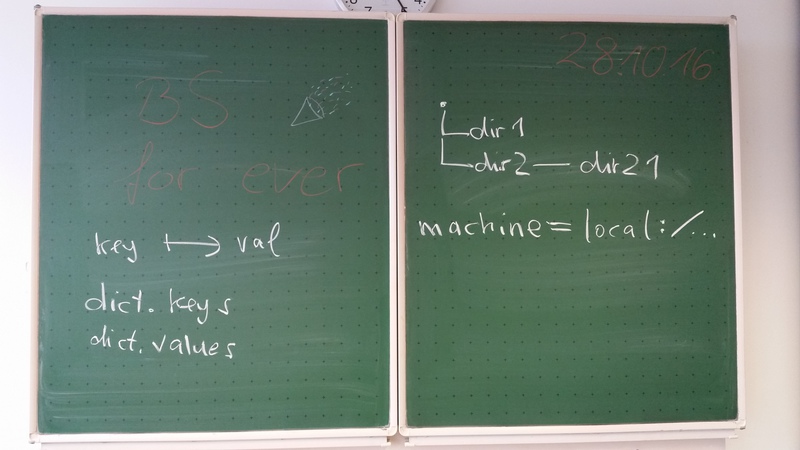 BS
for ever
key ↦ val
dict. keys
dict. values
28.10.16
dir 1
dir 2 — dir 21
machine = local:/...